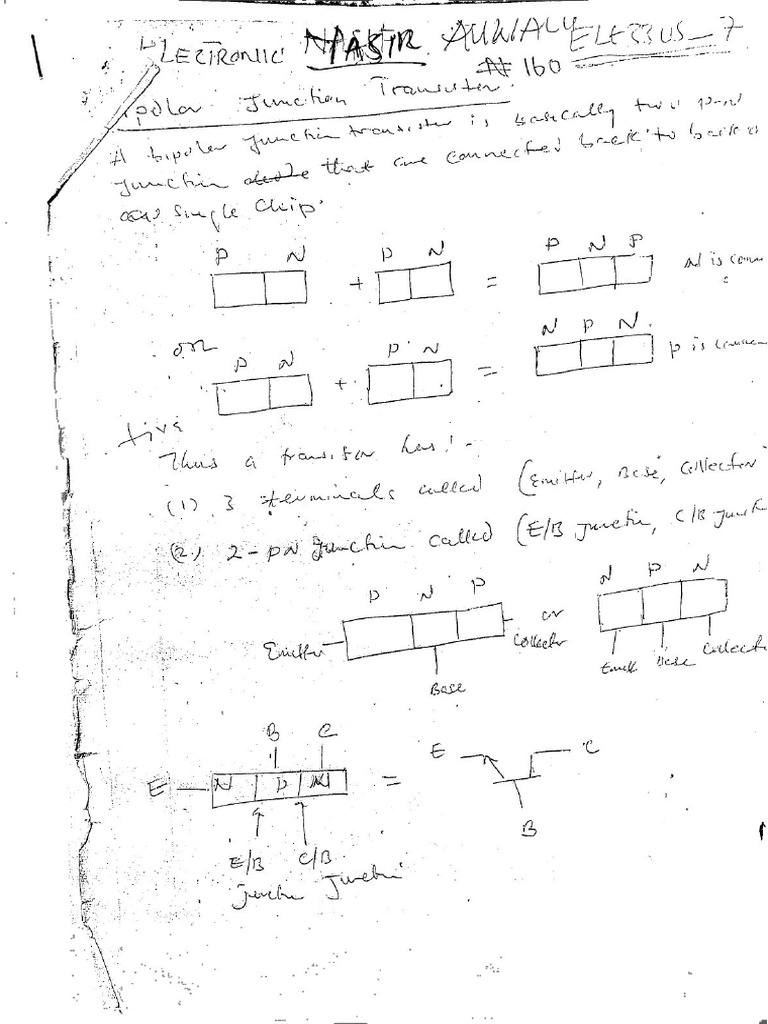 ELECTRONIC NASIR AUWALU ELE
₦ 160
ipolar Junction Transistor.
A bipolar junction transistor is basically two p-n
junction that are connected back to back
single chip.
P N P N P N P
+ = N is comm
or
P N P N N P N.
+ = P is common
tive
Thus a transistor has:-
(1) 3 terminals called (Emitter, Base, Collector
(2.) 2 - PN junction called (E/B junctin, C/B junct
P N P N P N
Emitter or Collector
Base Emitt Base Collecto
B C
E N P N = E C
B
E/B C/B
junctin junctin